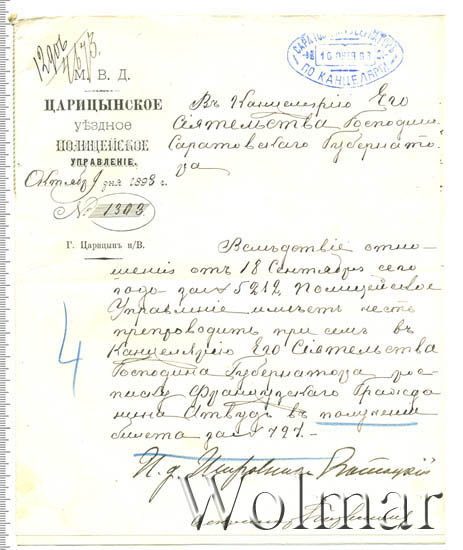 М. В. Д.
ЦАРИЦЫНСКОЕ
УѢЗДНОЕ
ПОЛИЦЕЙСКОЕ
УПРАВЛЕНІЕ.
Октября 9 дня 1893 г.
№ 1303
Г. Царицын н/В.
ПО КАНЦЕЛЯРІИ
Въ Канцелярію Его
Сіятельства Господина
Саратовскаго Губернато-
ра
Вслѣдствіе отно-
шенія отъ 18 Сентября сего
года за № 5212 Полицейское
Управленіе имѣетъ честь
препроводить при семъ въ
Канцелярію Его Сіятельства
Господина Губернатора рос-
писку Французскаго Гражда
нина въ полученіи
билета за № 797.-
4
И. д. Исправника
Wolmar